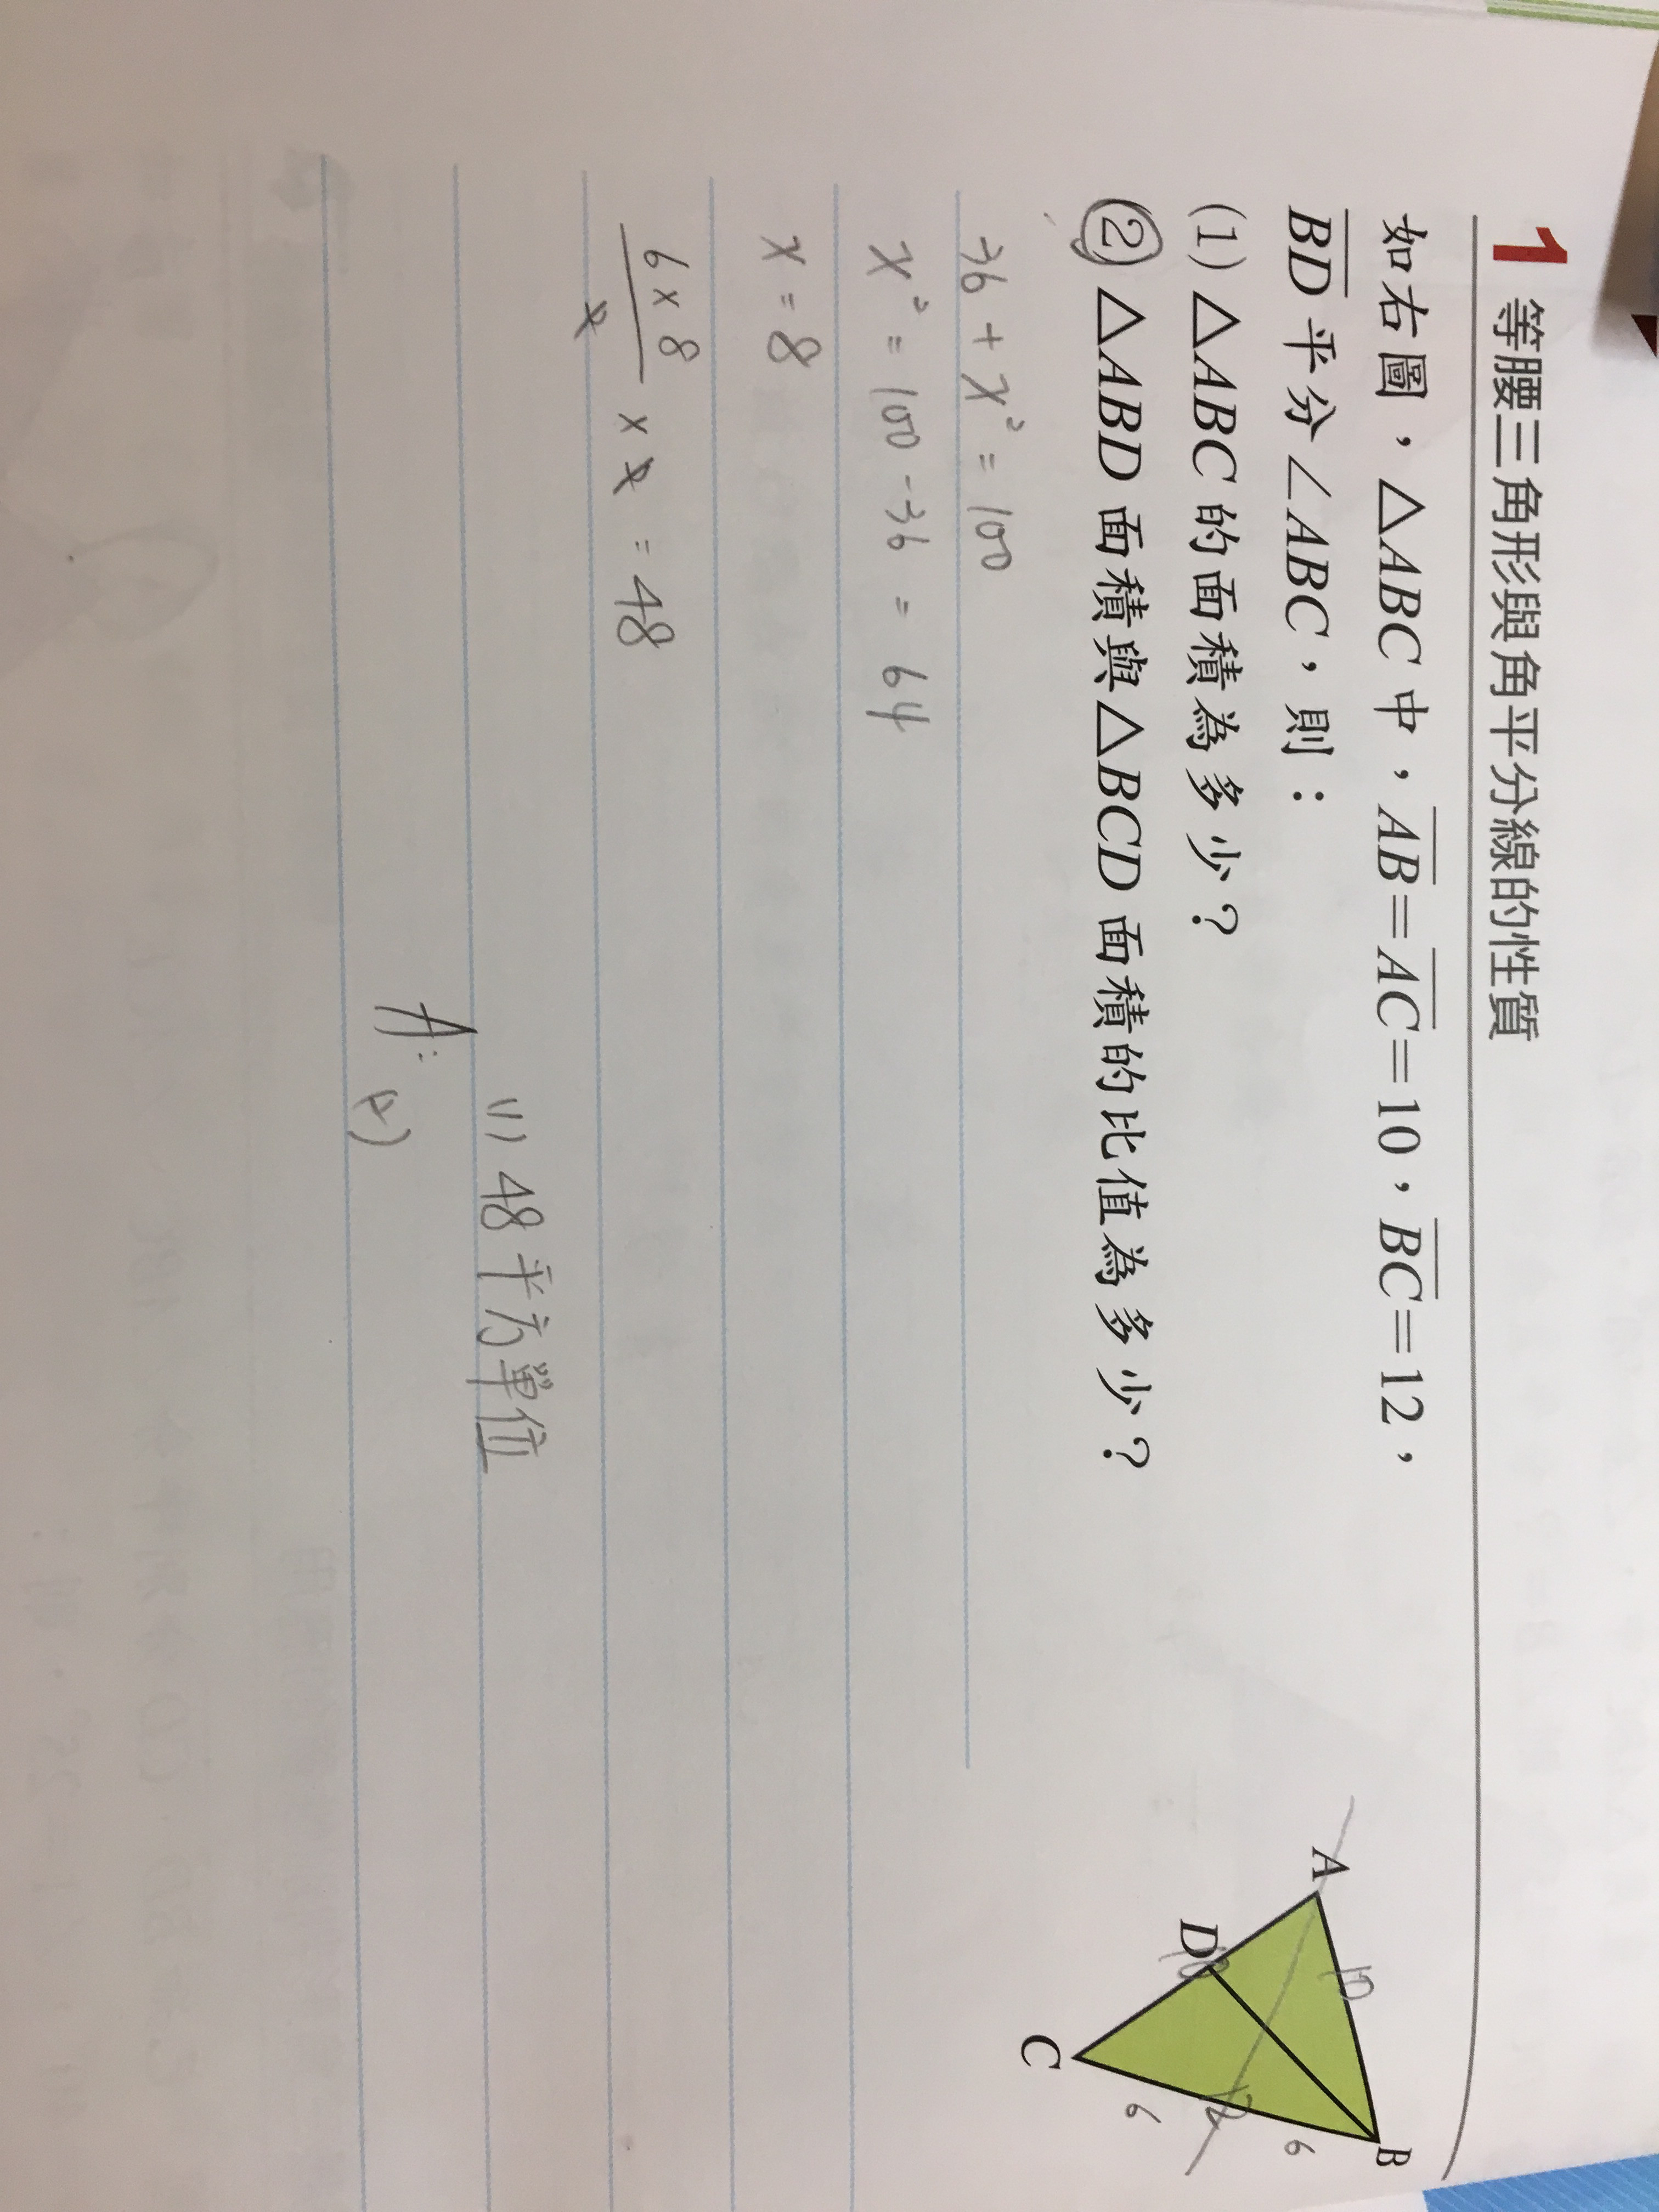 1 等腰三角形與角平分線的性質
如右圖，△ABC中，AB=AC=10，BC=12，
BD平分∠ABC，則：
(1) △ABC的面積為多少？
(2) △ABD面積與△BCD面積的比值為多少？
A
B
C
D
10
10
12
6
6
36 + x² = 100
x² = 100 - 36 = 64
x = 8
6×8/2 × 2 = 48
(1) 48平方單位
A: (2)